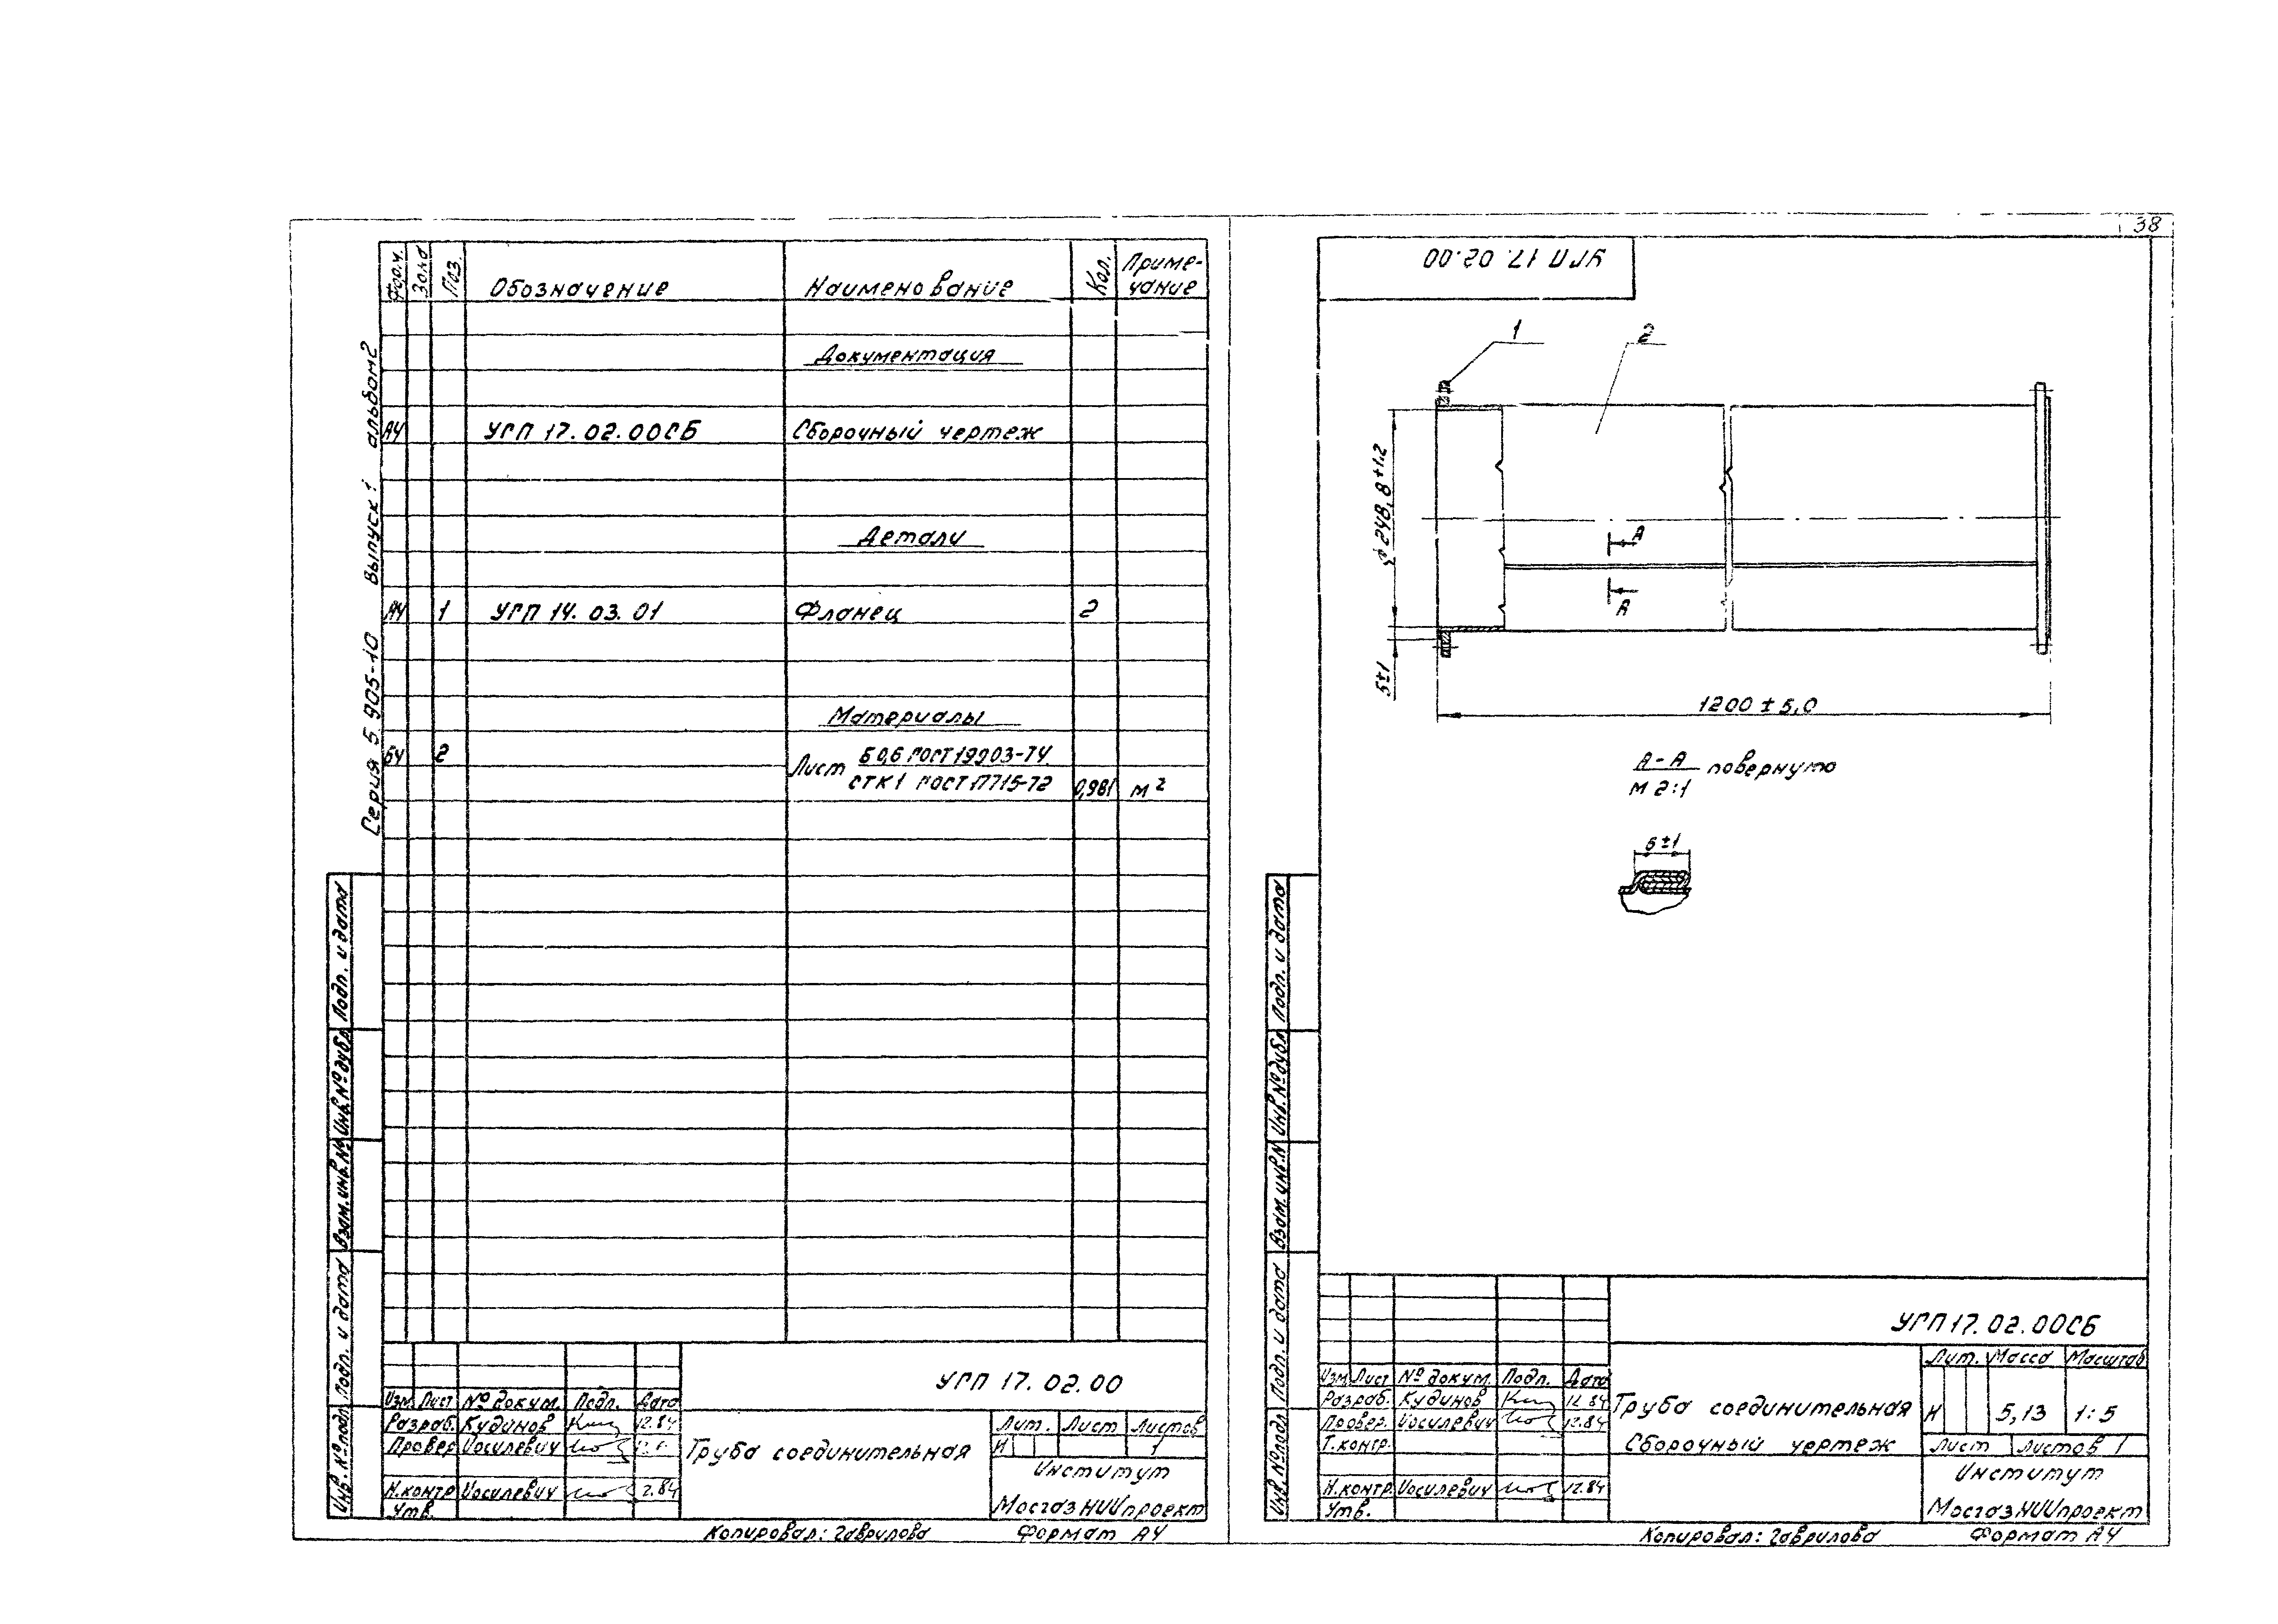 38
Серия 5.905-10 Выпуск 1 альбом 2
Форм. Зона Поз. Обозначение Наименование Кол. Приме-
чание
Документация
А4 УГП 17.02.00СБ Сборочный чертеж
Детали
А4 1 УГП 14.03.01 Фланец 2
Материалы
БЧ 2 Лист Б 0,6 ГОСТ 19903-74
СТК1 ГОСТ 17715-72 0,981 м²
Подп. и дата
Инв.№ дубл.
Взам.инв.№
Подп. и дата
Инв.№подл.
УГП 17.02.00
Изм. Лист № докум. Подп. Дата
Разраб. Кудинов 12.84
Провер. Иосилевич
Н.контр Иосилевич
Утв.
Труба соединительная
Лит. Лист Листов
И 1
Институт
МосгазНИИпроект
Копировал: Гаврилова Формат А4
УГП 17.02.00
1
2
⌀248,8+1,2
А
А
5±1
1200±5,0
А-А повернуто
М 2:1
6±1
Подп. и дата
Инв.№дубл.
Взам.инв.№
Подп. и дата
Инв.№подл.
УГП 17.02.00СБ
Изм Лист № докум. Подп. Дата
Разраб. Кудинов 12.84
Провер. Иосилевич 12.84
Т.контр.
Н.контр. Иосилевич 12.84
Утв.
Труба соединительная
Сборочный чертеж
Лит. Масса Масштаб
И 5,13 1:5
Лист Листов 1
Институт
МосгазНИИпроект
Копировал: Гаврилова Формат А4